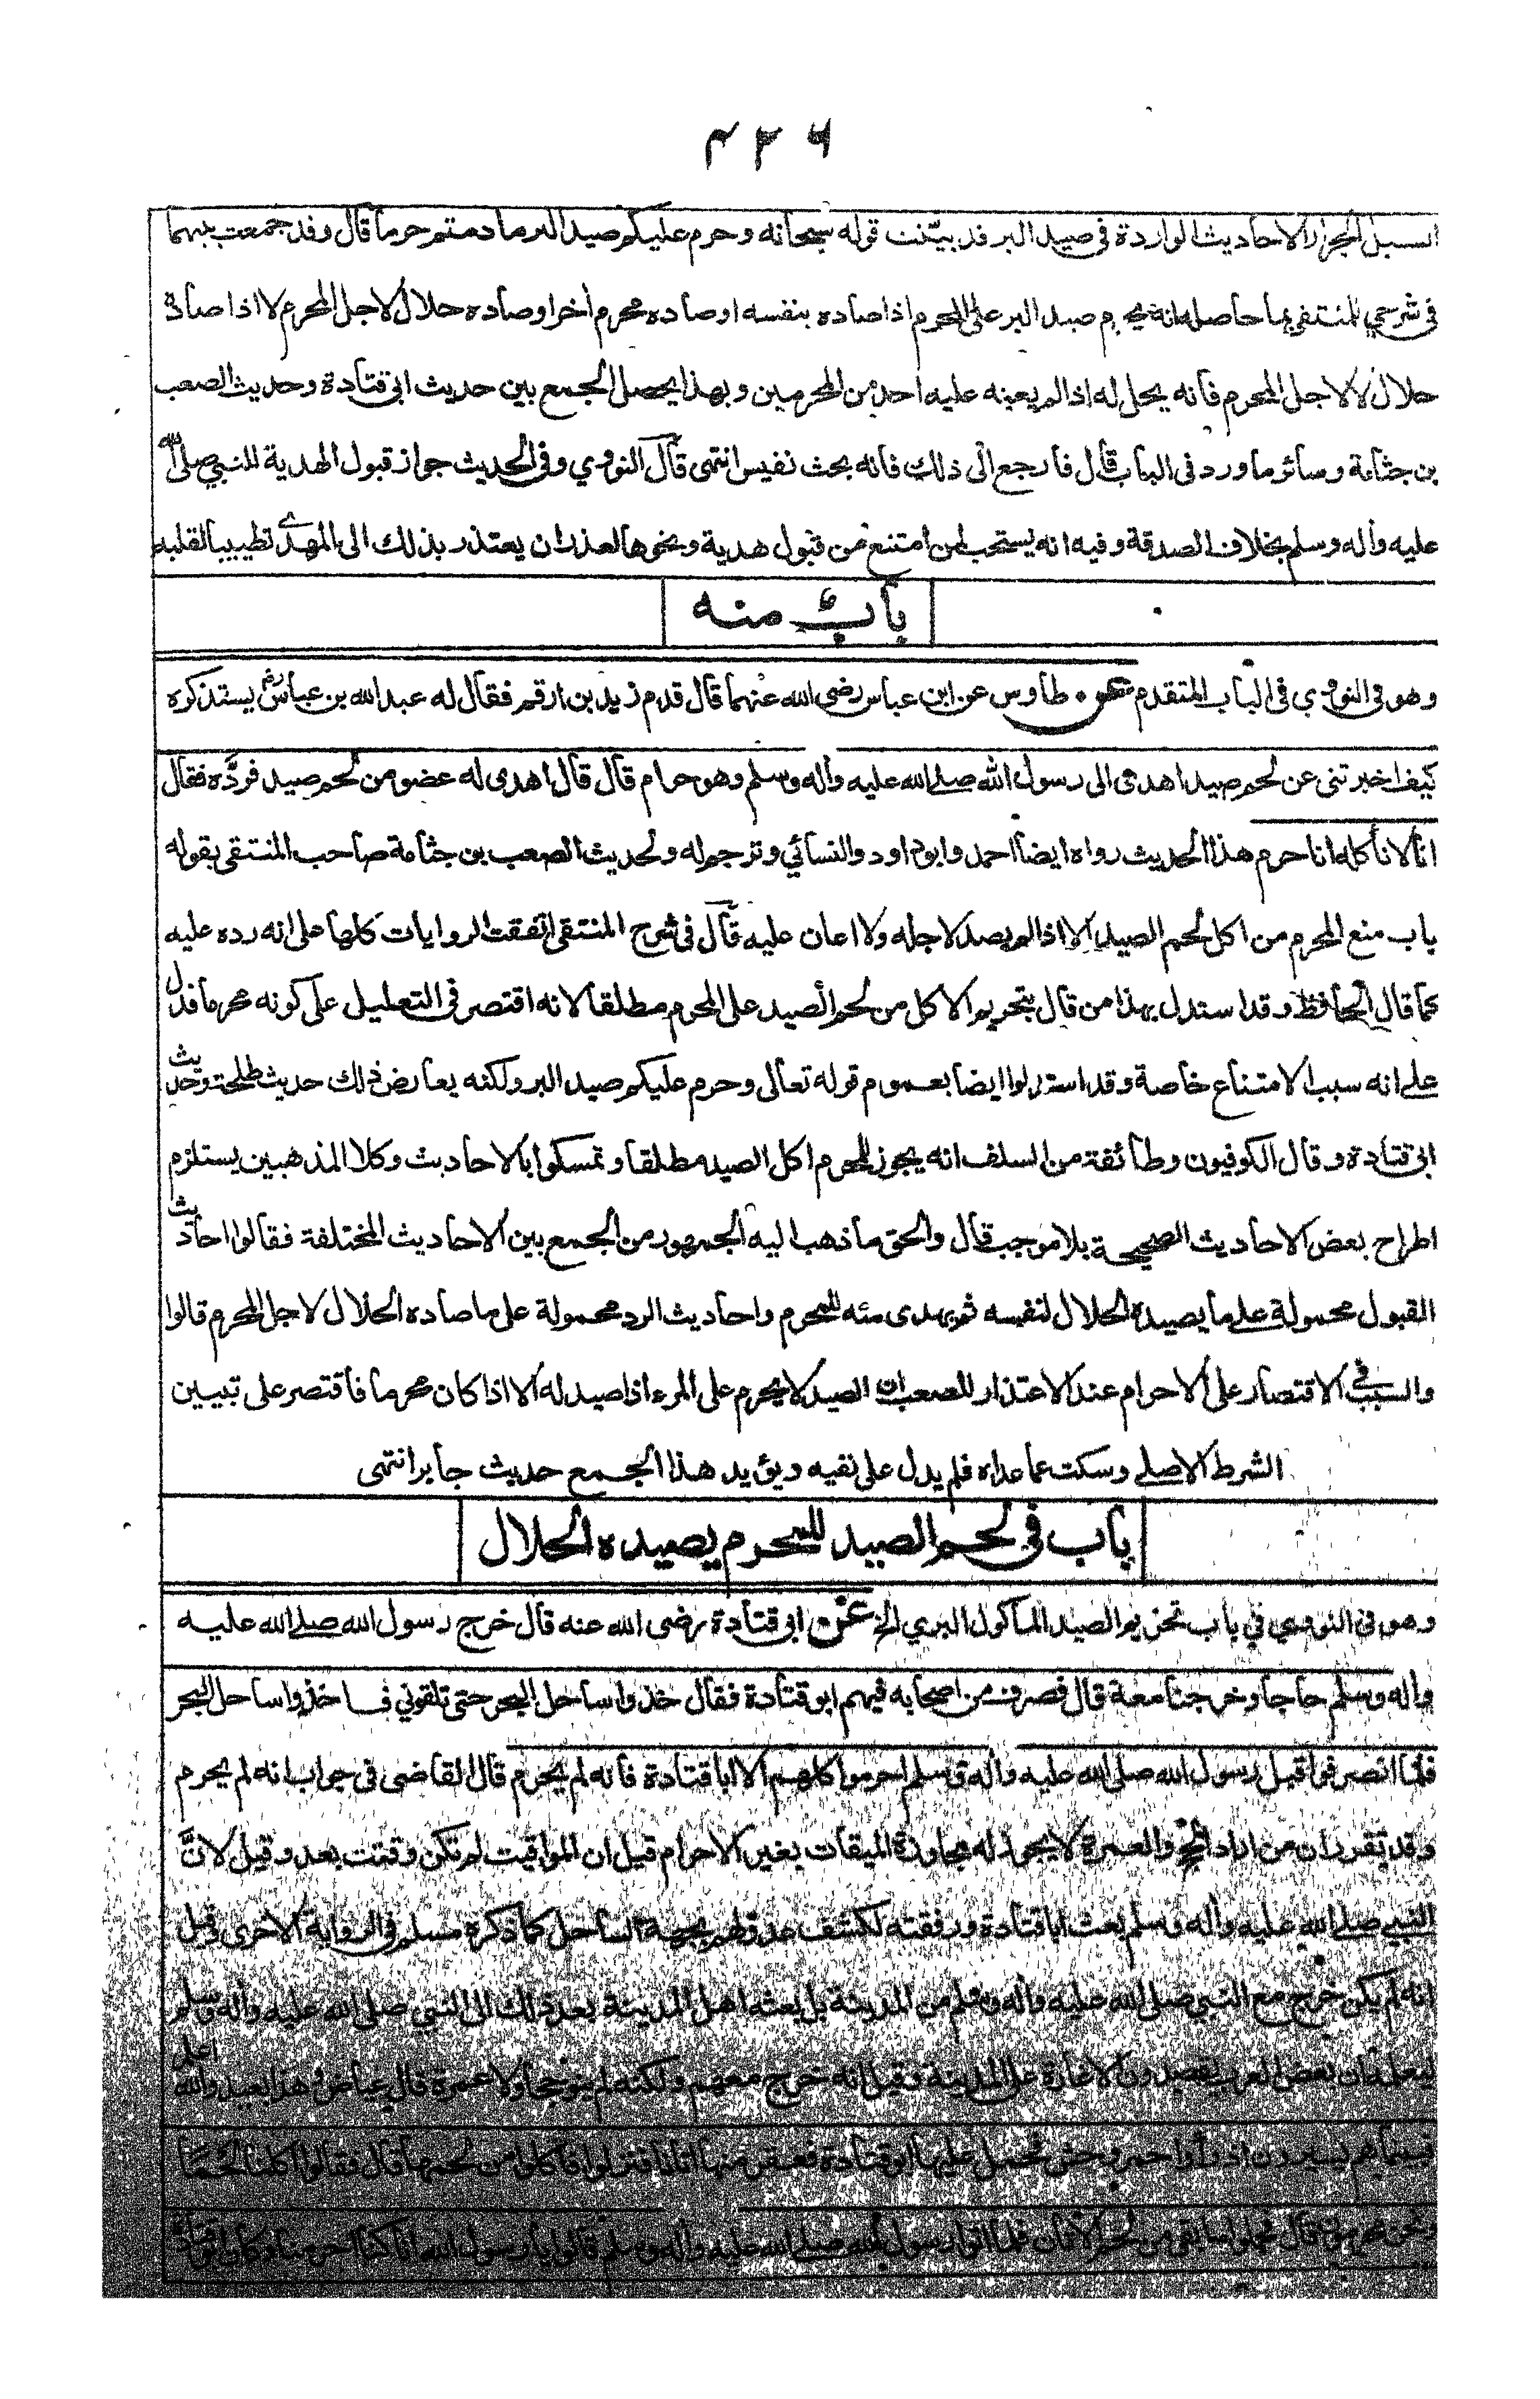 ٤٢٦
السبل الجرار الاحاديث الواردة فى صيد البر قد بيّنت قوله سبحانه وحرم عليكم صيد البر ما دمتم حرما قال وقد جمعت بينهما
فى شرحي للمنتقى بما حاصله انه يحرم صيد البر على المحرم اذا صاده بنفسه او صاده محرم اخر او صاده حلال لاجل المحرم لا اذا صاده
حلال لا لاجل المحرم فانه يحل له اذا لم يعنه عليه احد من المحرمين وبهذا يحصل الجمع بين حديث ابى قتادة وحديث الصعب
بن جثامة وسائر ما ورد فى الباب قال فارجع الى ذلك فانه بحث نفيس انتهى قال النووي وفى الحديث جواز قبول الهدية للنبي صلى الله
عليه وأله وسلم بخلاف الصدقة وفيه انه يستحب لمن امتنع من قبول هدية ونحوها لعذر ان يعتذر بذلك الى المهدي تطييبا لقلبه
باب منه
وهو فى النووي فى الباب المتقدم عن طاوس عن ابن عباس رضى الله عنهما قال قدم زيد بن ارقم فقال له عبد الله بن عباس رض يستذكره
كيف اخبرتنى عن لحم صيد اهدى الى رسول الله صلے الله عليه وأله وسلم وهو حرام قال قال اهدى له عضو من لحم صيد فردّه فقال
انا لا نأكله انا حرم هذا الحديث رواه ايضا احمد وابو داود والنسائي وترجم له ولحديث الصعب بن جثامة صاحب المنتقى بقوله
باب منع المحرم من اكل لحم الصيد الا اذا لم يصد لاجله ولا اعان عليه قال فى شرح المنتقى اتفقت الروايات كلها على انه رده عليه
كما قال الحافظ وقد استدل بهذا من قال بتحريم الاكل من لحم الصيد على المحرم مطلقا لانه اقتصر فى التعليل على كونه محرما فدل
على انه سبب الامتناع خاصة وقد استدلوا ايضا بعموم قوله تعالى وحرم عليكم صيد البر ولكنه يعارض ذلك حديث طلحة وحديث
ابى قتادة وقال الكوفيون وطائفة من السلف انه يجوز للمحرم اكل الصيد مطلقا وتمسكوا بالاحاديث وكلا المذهبين يستلزم
اطراح بعض الاحاديث الصحيحة بلا موجب قال والحق ما ذهب اليه الجمهور من الجمع بين الاحاديث المختلفة فقالوا احاديث
القبول محمولة على ما يصيده الحلال لنفسه ثم يهدى منه للمحرم واحاديث الرد محمولة على ما صاده الحلال لاجل المحرم قالوا
والسبب فى الاقتصار على الاحرام عند الاعتذار للصعب ان الصيد لا يحرم على المرء اذا صيد له الا اذا كان محرما فاقتصر على تبيين
الشرط الاصلے وسكت عما عداه فلم يدل على نفيه ويؤيد هذا الجمع حديث جابر انتهى
باب فى لحم الصيد للمحرم يصيده الحلال
وهو فى النووي في باب تحريم الصيد المأكول البري الخ عن ابى قتادة رضى الله عنه قال خرج رسول الله صلے الله عليه
وأله وسلم حاجا وخرجنا معه قال فصرف من اصحابه فيهم ابو قتادة فقال خذوا ساحل البحر حتى تلقوني فاخذوا ساحل البحر
فلما انصرفوا قبل رسول الله صلى الله عليه وأله وسلم احرموا كلهم الا ابا قتادة فانه لم يحرم قال القاضى فى جواب انه لم يحرم
وقد تقرر ان من اراد الحج والعمرة لا يجوز له مجاوزة الميقات بغير الاحرام قيل ان المواقيت لم تكن وقتت بعد وقيل لانّ
النبي صلے الله عليه وأله وسلم بعث ابا قتادة ورفقته لكشف عدو لهم بجهة الساحل كما ذكره مسلم فى الرواية الاخرى وقيل
انه لم يكن خرج مع النبي صلى الله عليه وأله وسلم من المدينة بل بعثه اهل المدينة بعد ذلك الى النبي صلى الله عليه وأله وسلم
ليعلمه ان بعض العرب يقصدون الاغارة على المدينة وقيل انه خرج معهم ولكنه لم ينو حجا ولا عمرة قال عياض وهذا بعيد والله اعلم
فبينما هم يسيرون اذ رأوا حمر وحش فحمل عليها ابو قتادة فعقر منها اتانا فنزلوا فاكلوا من لحمها قال فقالوا اكلنا لحما
ونحن محرمون قال فحملوا ما بقى من لحم الاتان فلما اتوا رسول الله صلے الله عليه وأله وسلم قالوا يا رسول الله انا كنا احرمنا وكان ابو قتادة